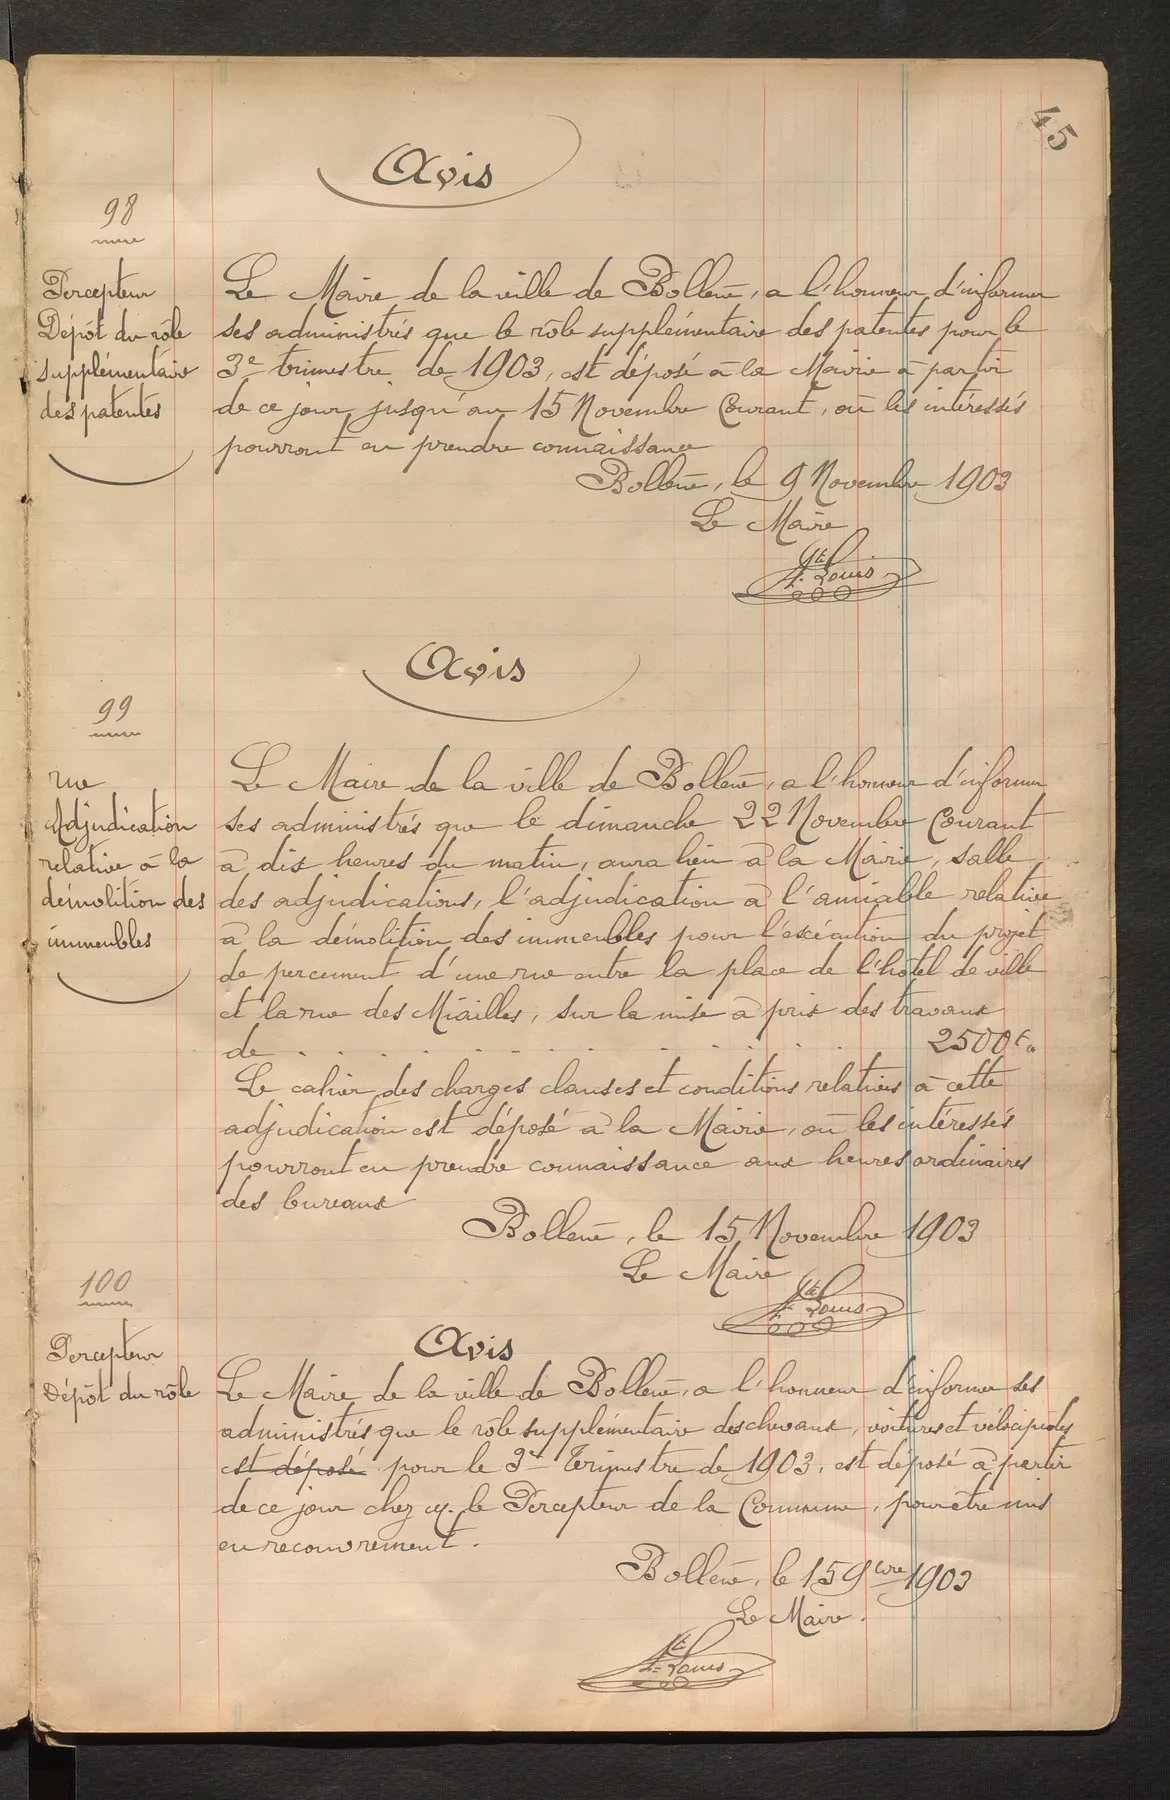 45
Avis
98
Percepteur
Dépôt du rôle
supplémentaire
des patentes
Le Maire de la ville de Bollène, a l'honneur d'informer
ses administrés que le rôle supplémentaire des patentes pour le
3e trimestre de 1903, est déposé à la Mairie à partir
de ce jour jusqu'au 15 Novembre Courant, où les intéressés
pourront en prendre connaissance
Bollène, le 9 Novembre 1903
Le Maire
Louis
Avis
99
rue
Adjudication
relative à la
démolition des
immeubles
Le Maire de la ville de Bollène, a l'honneur d'informer
ses administrés que le dimanche 22 Novembre Courant
à dix heures du matin, aura lieu à la Mairie, salle
des adjudications, l'adjudication à l'amiable relative
à la démolition des immeubles pour l'exécution du projet
de percement d'une rue entre la place de l'hôtel de ville
et la rue des Miailles, sur la mise à prix des travaux
de . . . . . . . . . . . . . 2500f "
Le cahier des charges clauses et conditions relatives à cette
adjudication est déposé à la Mairie, où les intéressés
pourront en prendre connaissance aux heures ordinaires
des bureaux
Bollène, le 15 Novembre 1903
Le Maire
Louis
100
Percepteur
Dépôt du rôle
Avis
Le Maire de la ville de Bollène, a l'honneur d'informer ses
administrés que le rôle supplémentaire des chevaux, voitures et vélocipèdes
est déposé pour le 3e Trimestre de 1903, est déposé à partir
de ce jour chez M. le Percepteur de la Commune, pour être mis
en recouvrement.
Bollène, le 15 9bre 1903
Le Maire.
Louis